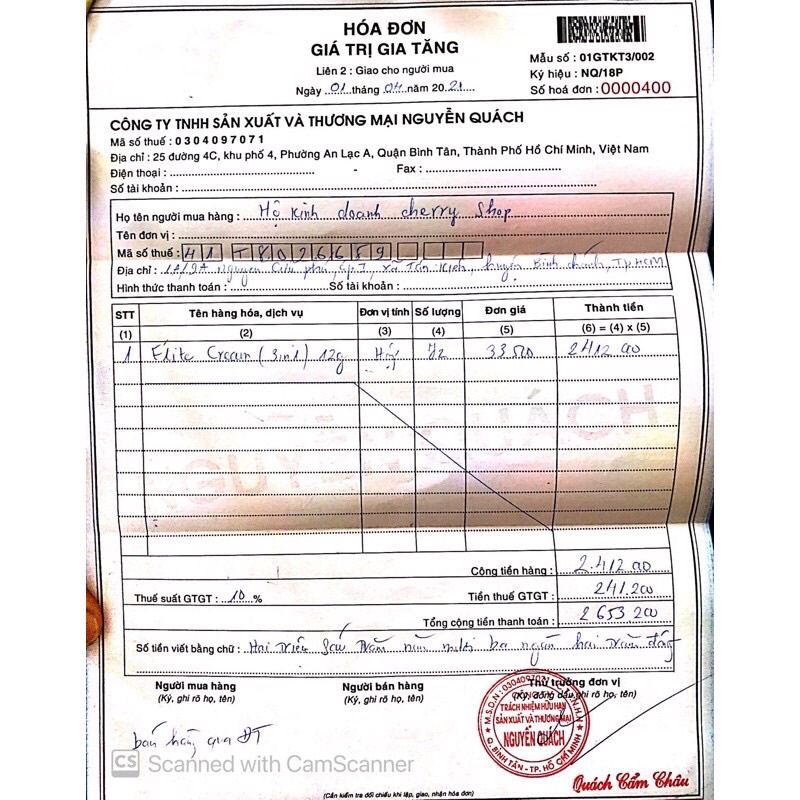 HÓA ĐƠN
GIÁ TRỊ GIA TĂNG
Liên 2 : Giao cho người mua
Ngày 01 tháng 04 năm 2021
Mẫu số : 01GTKT3/002
Ký hiệu : NQ/18P
Số hoá đơn : 0000400
CÔNG TY TNHH SẢN XUẤT VÀ THƯƠNG MẠI NGUYỄN QUÁCH
Mã số thuế : 0304097071
Địa chỉ : 25 đường 4C, khu phố 4, Phường An Lạc A, Quận Bình Tân, Thành Phố Hồ Chí Minh, Việt Nam
Điện thoại : - Fax :
Số tài khoản :
Họ tên người mua hàng : Hộ kinh doanh cherry Shop
Tên đơn vị :
Mã số thuế : 41 T8026659
Địa chỉ : 1A/2A Nguyễn Cửu Phú, ấp 1, xã Tân Kiên, huyện Bình chánh, Tp HCM
Hình thức thanh toán : Số tài khoản :
STT Tên hàng hóa, dịch vụ Đơn vị tính Số lượng Đơn giá Thành tiền
(1) (2) (3) (4) (5) (6) = (4) x (5)
1 Elite Cream (3in1) 12g 72 33500 2412 000
Cộng tiền hàng : 2.412 000
Thuế suất GTGT : 10 % Tiền thuế GTGT : 241.200
Tổng cộng tiền thanh toán : 2 653 200
Số tiền viết bằng chữ : Hai triệu Sáu trăm năm mươi ba ngàn hai trăm đồng
Người mua hàng Người bán hàng Thủ trưởng đơn vị
(Ký, ghi rõ họ, tên) (Ký, ghi rõ họ, tên) (Ký, đóng dấu, ghi rõ họ, tên)
M.S.D.N : 0304097071
TRÁCH NHIỆM HỮU HẠN
SẢN XUẤT VÀ THƯƠNG MẠI
NGUYỄN QUÁCH
Q. BÌNH TÂN - TP. HỒ CHÍ MINH
bán hàng qua ĐT
CS Scanned with CamScanner
Quách Cẩm Châu
(Cần kiểm tra đối chiếu khi lập, giao, nhận hóa đơn)